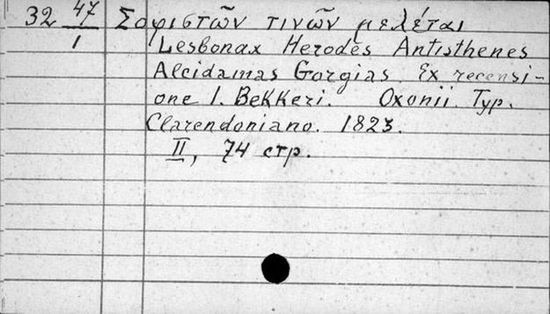 32 47/1 Σοφιστῶν τινῶν μελέται
Lesbonax Herodes Antisthenes
Alcidamas Gorgias. Ex recensi-
one I. Bekkeri. Oxonii. Typ.
Clarendoniano. 1823.
II, 74 стр.